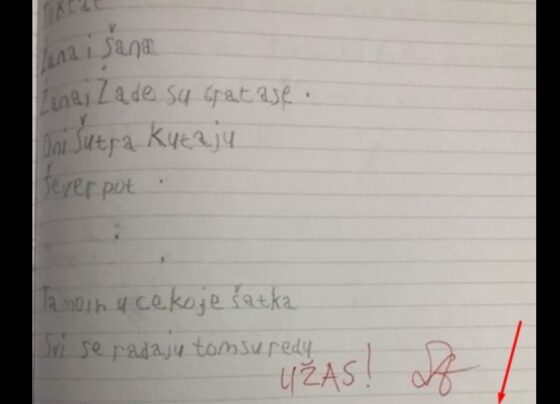 Diktat
Žana i Šana
Žana i Žade su gratase.
Oni šutra kutaju
Šever pot.
:
.
Tamoin u cekoje šatka
Svi se radaju tomsuredu
UŽAS!